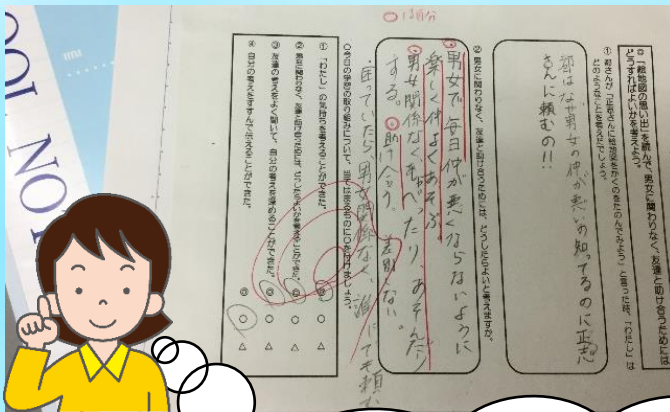 ○自分
◎「絵地図の思い出」を読んで、男女に関わりなく、友達と助け合うためには
どうすればよいかを考えよう。
① 都さんが「正志さんに絵地図をかくのをたのんでみよう」と言った時、「わたし」は
どのようなことを考えたでしょう。
都はなぜ男女の仲が悪いの知ってるのに正志
さんに頼むの!!
② 男女に関わりなく、友達と助け合うためには、どうしたらよいと考えますか。
男女で毎日仲が悪くならないように
楽しく仲よくあそぶ。
男女関係なくしゃべったりあそんだり
する。助け合う。差別しない。
困っていたら、男女関係なく、誰にでも頼む
○今日の学習の取り組みについて、当てはまるものに○を付けましょう。
① 「わたし」の気持ちを考えることができた。 ◎ ○ △
② 男女に関わりなく、友達と助け合うためには、どうしたらよいかを考えることができた。 ◎ ○ △
③ 友達の考えをよく聞いて、自分の考えを深めることができた。 ◎ ○ △
④ 自分の考えをすすんで伝えることができた。 ◎ ○ △